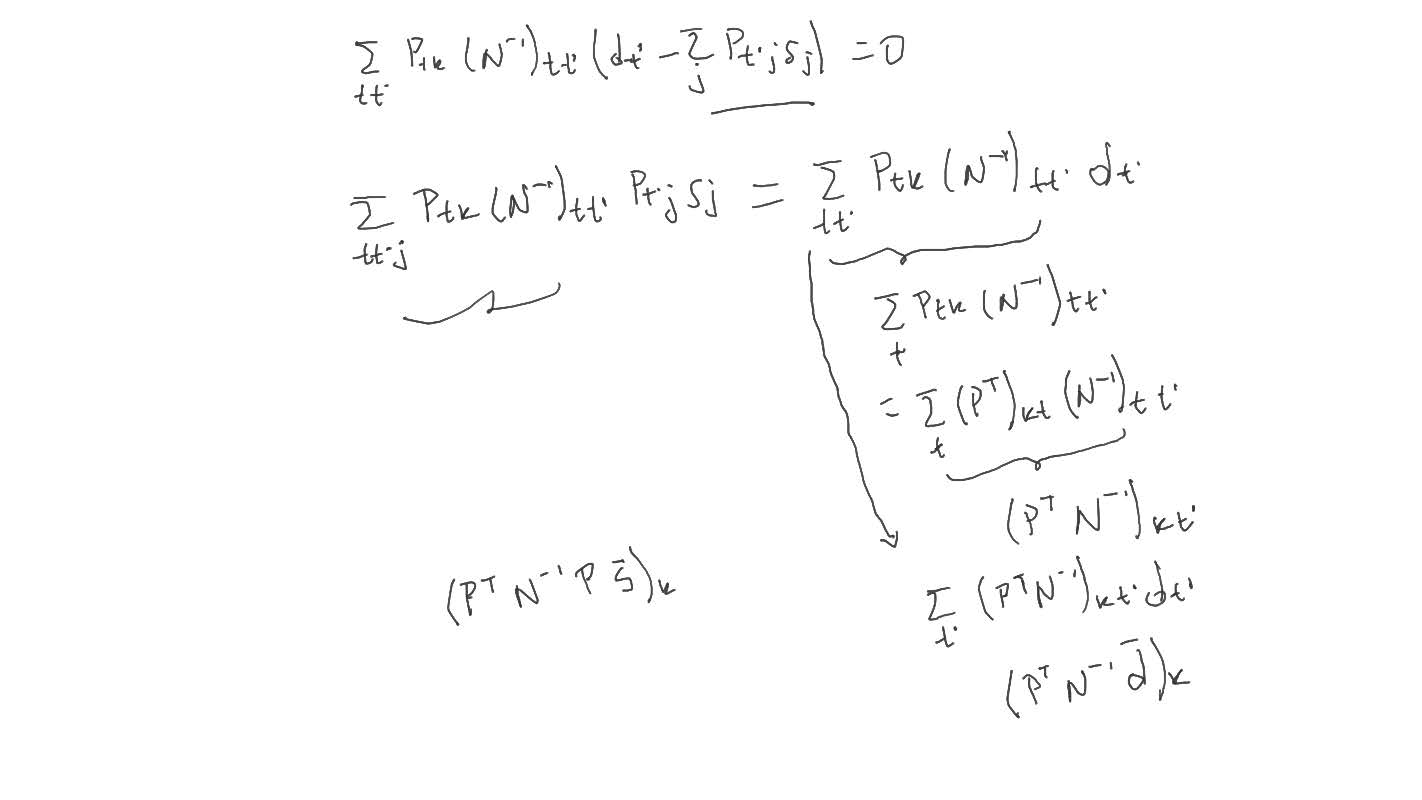 Σ_{tt'} P_{tk} (N⁻¹)_{tt'} (d_{t'} − Σ_j P_{t'j} s_j) = 0
Σ_{tt'j} P_{tk} (N⁻¹)_{tt'} P_{t'j} s_j = Σ_{tt'} P_{tk} (N⁻¹)_{tt'} d_{t'}
Σ_t P_{tk} (N⁻¹)_{tt'}
= Σ_t (Pᵀ)_{kt} (N⁻¹)_{tt'}
(Pᵀ N⁻¹)_{kt'}
(Pᵀ N⁻¹ P s̄)_k
Σ_{t'} (Pᵀ N⁻¹)_{kt'} d_{t'}
(Pᵀ N⁻¹ d̄)_k